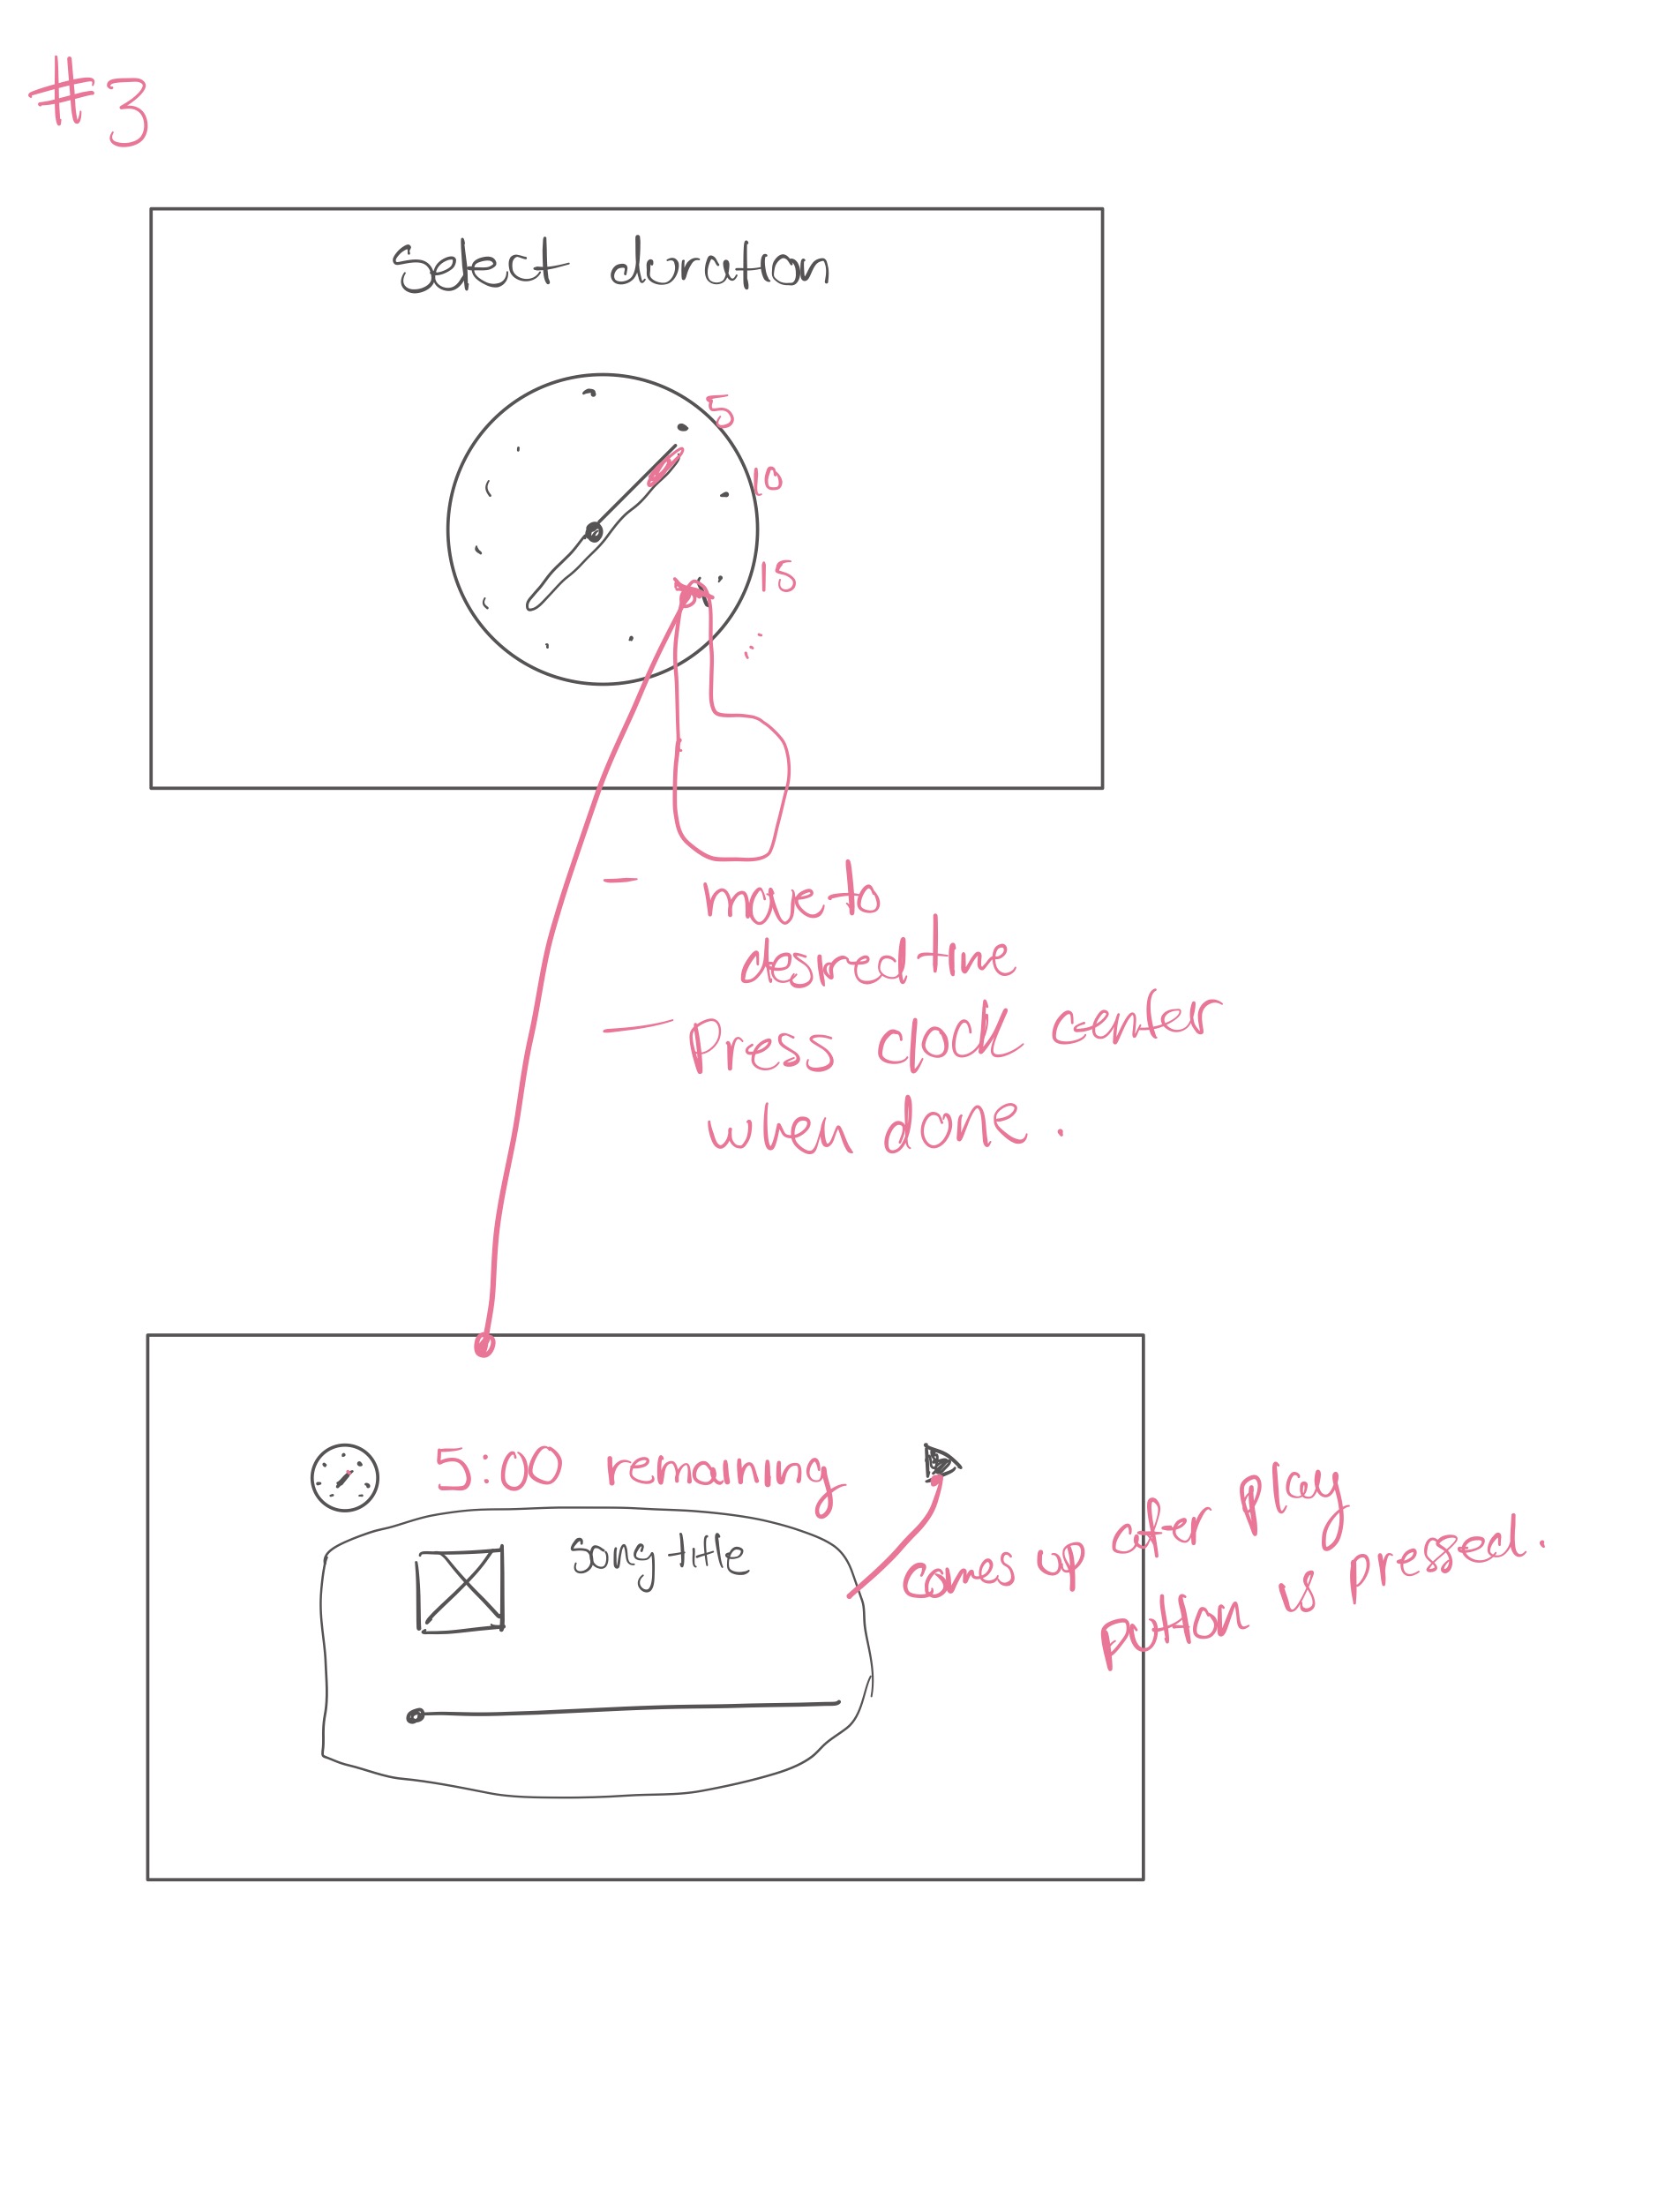 #3
Select duration
5
10
15
...
- move to
desired time
- Press clock center
when done.
5:00 remaining
song title
comes up after play
button is pressed.